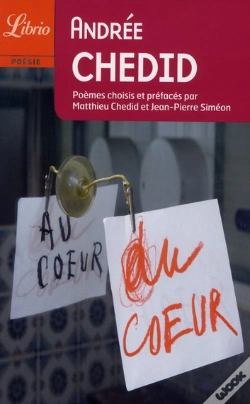 Librio
POÉSIE
ANDRÉE
CHEDID
Poèmes choisis et préfacés par
Matthieu Chedid et Jean-Pierre Siméon
AU
COEUR
du
COEUR
WOOK